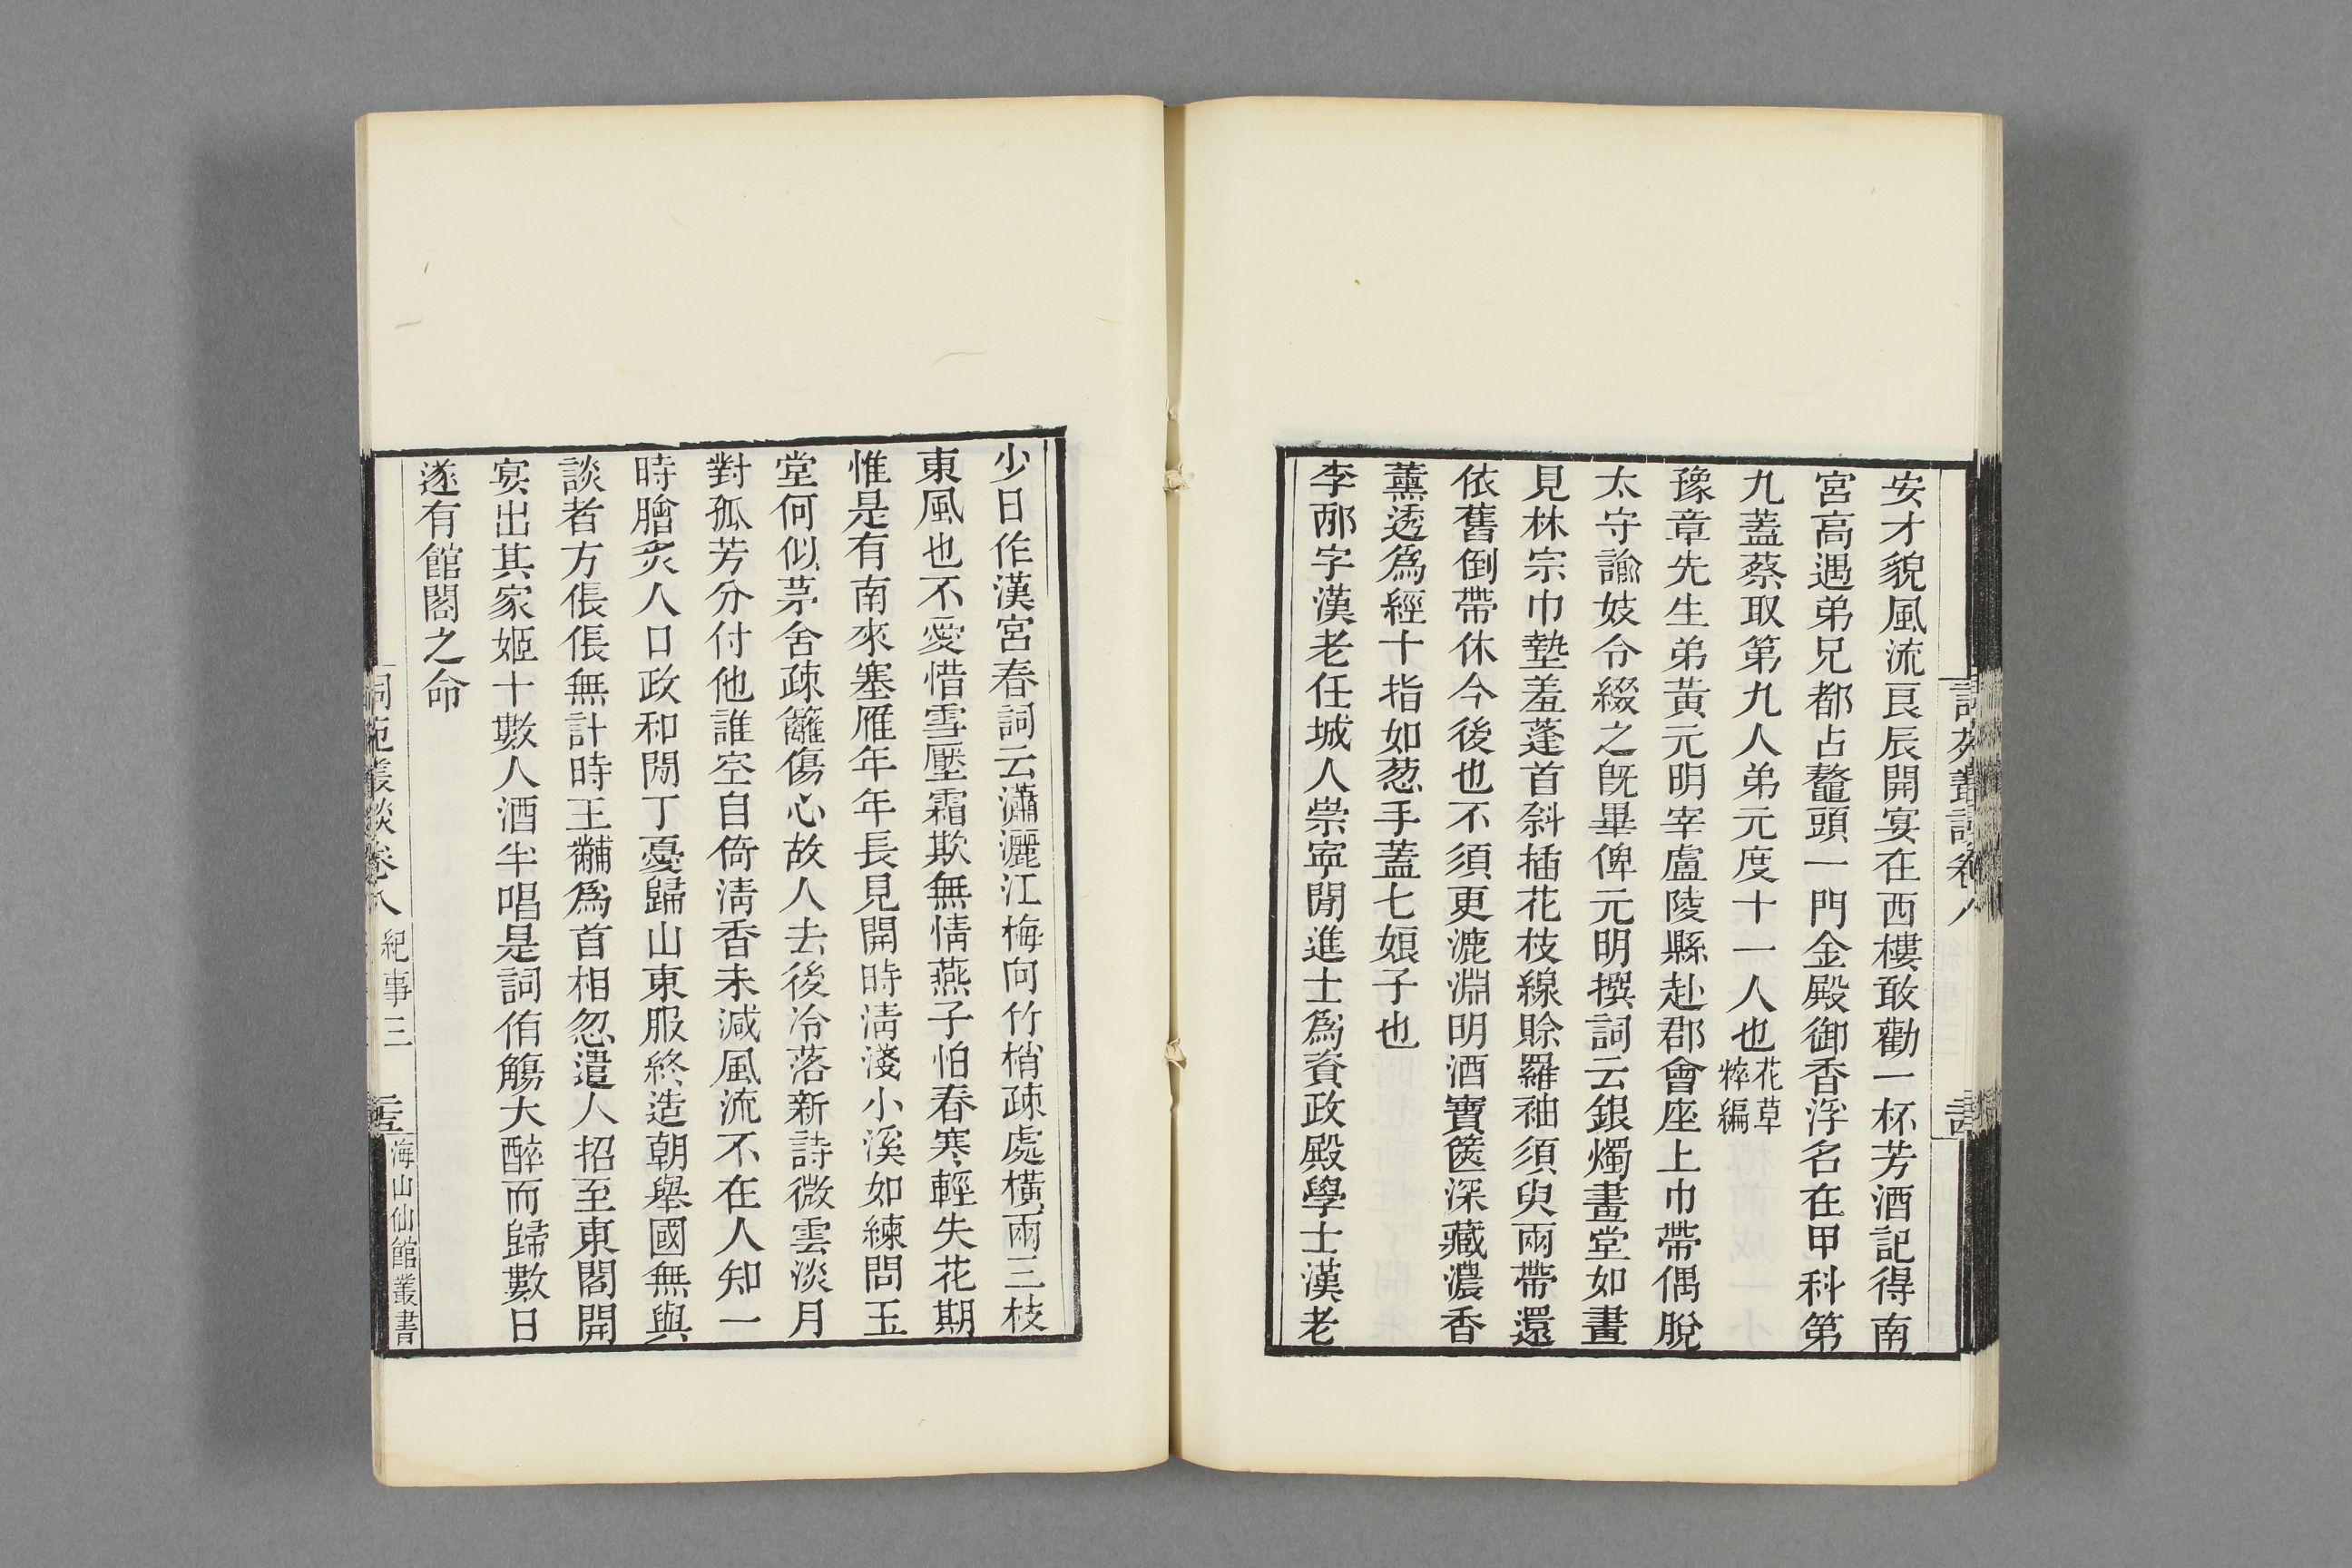 安才貌風流良辰開宴在西樓敢勸一杯芳酒記得南
宮高遇弟兄都占鼇頭一門金殿御香浮名在甲科第
九蓋蔡取第九人弟元度十一人也花草粹編
豫章先生弟黃元明宰盧陵縣赴郡會座上巾帶偶脫
太守諭妓令綴之旣畢俾元明撰詞云銀燭畫堂如晝
見林宗巾墊羞蓬首斜插花枝線賒羅袖須臾兩帶還
依舊倒帶休今後也不須更漉淵明酒寶篋深藏濃香
薰透爲經十指如葱手蓋七娘子也
李邴字漢老任城人崇寧閒進士爲資政殿學士漢老
少日作漢宮春詞云瀟灑江梅向竹梢疎處橫兩三枝
東風也不愛惜雪壓霜欺無情燕子怕春寒輕失花期
惟是有南來塞雁年年長見開時淸淺小溪如練問玉
堂何似茅舍疎籬傷心故人去後冷落新詩微雲淡月
對孤芳分付他誰空自倚淸香未減風流不在人知一
時膾炙人口政和閒丁憂歸山東服終造朝舉國無與
談者方倀倀無計時王黼爲首相忽遣人招至東閣開
宴出其家姬十數人酒半唱是詞侑觴大醉而歸數日
遂有館閣之命
詞苑叢談卷八 紀事三 海山仙館叢書